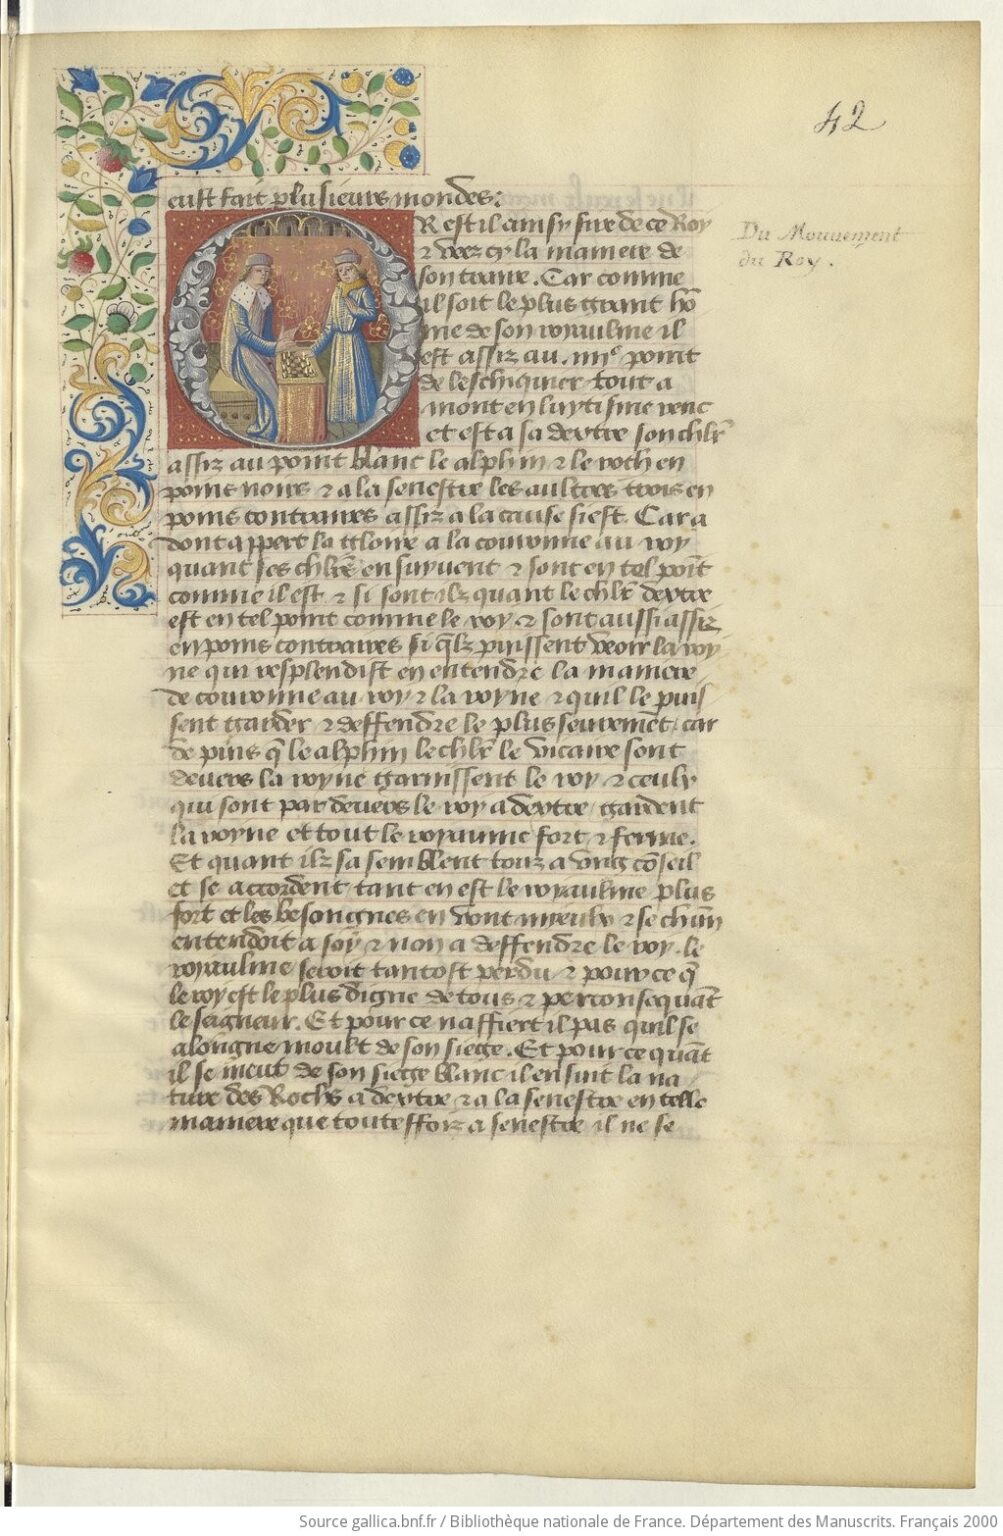 42
eust fait plusieurs mondes:
Du Mouuement
du Roy.
R est il ainsy fire de ce Roy
⁊ veez cy la maniere de
son traire. Car comme
il soit le plus grant hō
me de son royaulme il
est assiz au .iiii<sup>e</sup> point
de leschiquier tout a
mont en luytisme renc
et est a sa dextre son chlr̄
assiz au point blanc le alphin ⁊ le roch en
poins noirs ⁊ a la senestre les aultres trois en
poins contraires assiz a la cause si est. Car a
dont appert la gloire a la couronne au roy
quant ses chlr̄s ensuyuent ⁊ sont en tel poīt
comme il est ⁊ si sont ilz quant le chlr̄ dextre
est en tel point comme le roy ⁊ sont aussi assiz
en poins contraires si q̄lz puissent veoir la roy
ne qui resplendist en entendre la maniere
de couronne au roy ⁊ la royne ⁊ quil le puis
sent garder ⁊ deffendre le plus seuremēt car
de puis q̄ le alphin le chlr̄ le vicaire sont
deuers la royne garnissent le roy ⁊ ceulx
qui sont par deuers le roy a dextre gardent
la royne et tout le royaume fort ⁊ ferme.
Et quant ilz sa semblent touz a vng cōseil
et se accordent tant en est le royaulme plus
fort et les besongnes en vont myeulx ⁊ se chūn
entendoit a soy ⁊ non a deffendre le roy. le
royaulme seroit tantost perdu ⁊ pour ce q̄
le roy est le plus digne de tous ⁊ per consequāt
le seigneur. Et pour ce naffiert il pas quil se
alongne moult de son siege. Et pour ce quāt
il se meut de son siege blanc il ensuit la na
ture des Rochs a dextre ⁊ a la senestre en telle
maniere que touteffoiz a senestre il ne se
Source gallica.bnf.fr / Bibliothèque nationale de France. Département des Manuscrits. Français 2000